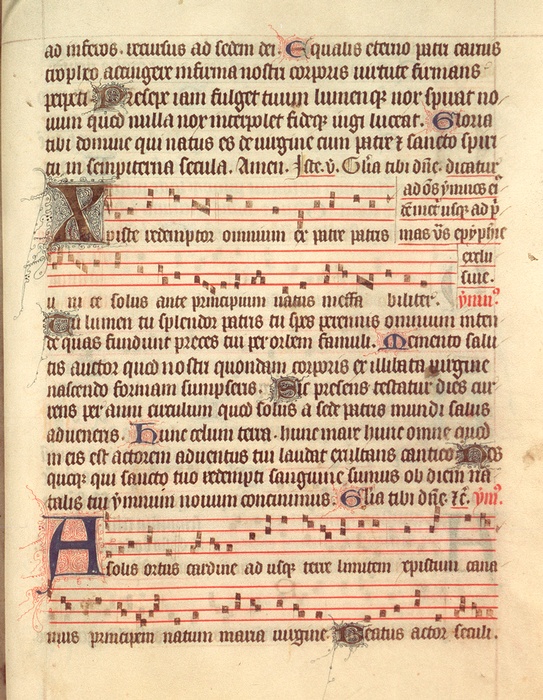 ad inferos. recursus ad sedem dei. Equalis eterno patri carnis
tropheo accingere infirma nostri corporis virtute firmans
perpeti Presepe iam fulget tuum lumenque nox spirat no
vum quod nulla nox interpolet fideque iugi luceat. Gloria
tibi domine qui natus es de virgine cum patre & sancto spiri
tu in sempiterna secula. Amen. Iste .v. Glia tibi dne. dicatur
ad os ymnos ei
usque ad
mas vs epyphie
Xpiste redemptor omnium ex patre patris
exclu
siue.
u ni ce solus ante principium natus ineffa biliter. ymn9.
Tu lumen tu splendor patris tu spes perennis omnium inten
de quas fundunt preces tui per orbem famuli. Memento salu
tis auctor quod nostri quondam corporis ex illibata virgine
nascendo formam sumpseris. Sic presens testatur dies cur
rens per anni circulum quod solus a sede patris mundi salus
adveneris. Hunc celum terra. hunc mare hunc omne quod
in eis est actorem adventus tui laudat exultans cantico Nos
quoque qui sancto tuo redempti sanguine sumus ob diem na
talis tui ymnum novum concinimus. Glia tibi dne. &c. ymn9.
A solis ortus cardine ad usque terre limitem cpistum cana
mus principem natum maria virgine. Beatus actor seculi.